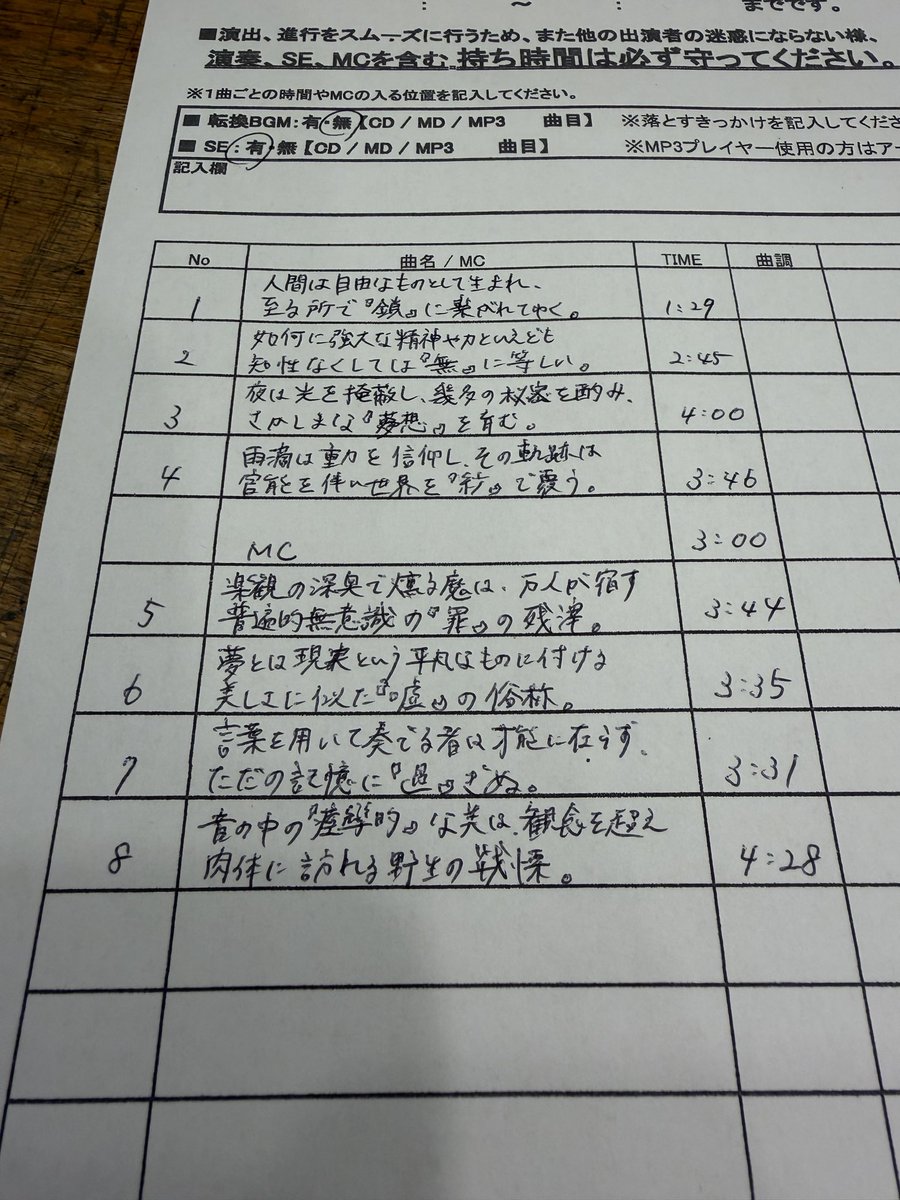 : ～ : までです。
■演出、進行をスムーズに行うため、また他の出演者の迷惑にならない様、
演奏、SE、MCを含む 持ち時間は必ず守ってください。
※1曲ごとの時間やMCの入る位置を記入してください。
■ 転換BGM：有・無【CD / MD / MP3 曲目】 ※落とすきっかけを記入してくださ
■ SE：有・無【CD / MD / MP3 曲目】 ※MP3プレイヤー使用の方はアー
記入欄
No 曲名 / MC TIME 曲調
人間は自由なものとして生まれ、
1 至る所で『鎖』に繋がれてゆく。 1:29
如何に強大な精神や力といえども
2 知性なくしては『無』に等しい。 2:45
夜は光を掩蔽し、幾多の秘密を酌み、
3 さかしまな『夢想』を育む。 4:00
雨滴は重力を信仰し、その軌跡は
4 官能を伴い世界を『彩』で覆う。 3:46
MC 3:00
楽観の深奥で燻る魔は、万人が宿す
5 普遍的無意識の『罪』の残滓。 3:44
夢とは現実という平凡なものに付ける
6 美しさに似た『虚』の俗称。 3:35
言葉を用いて奏でる者は才能に在らず、
7 ただの記憶に『過』ぎぬ。 3:31
音の中の『痙攣的』な美は、観念を超え
8 肉体に訪れる野生の戦慄。 4:28